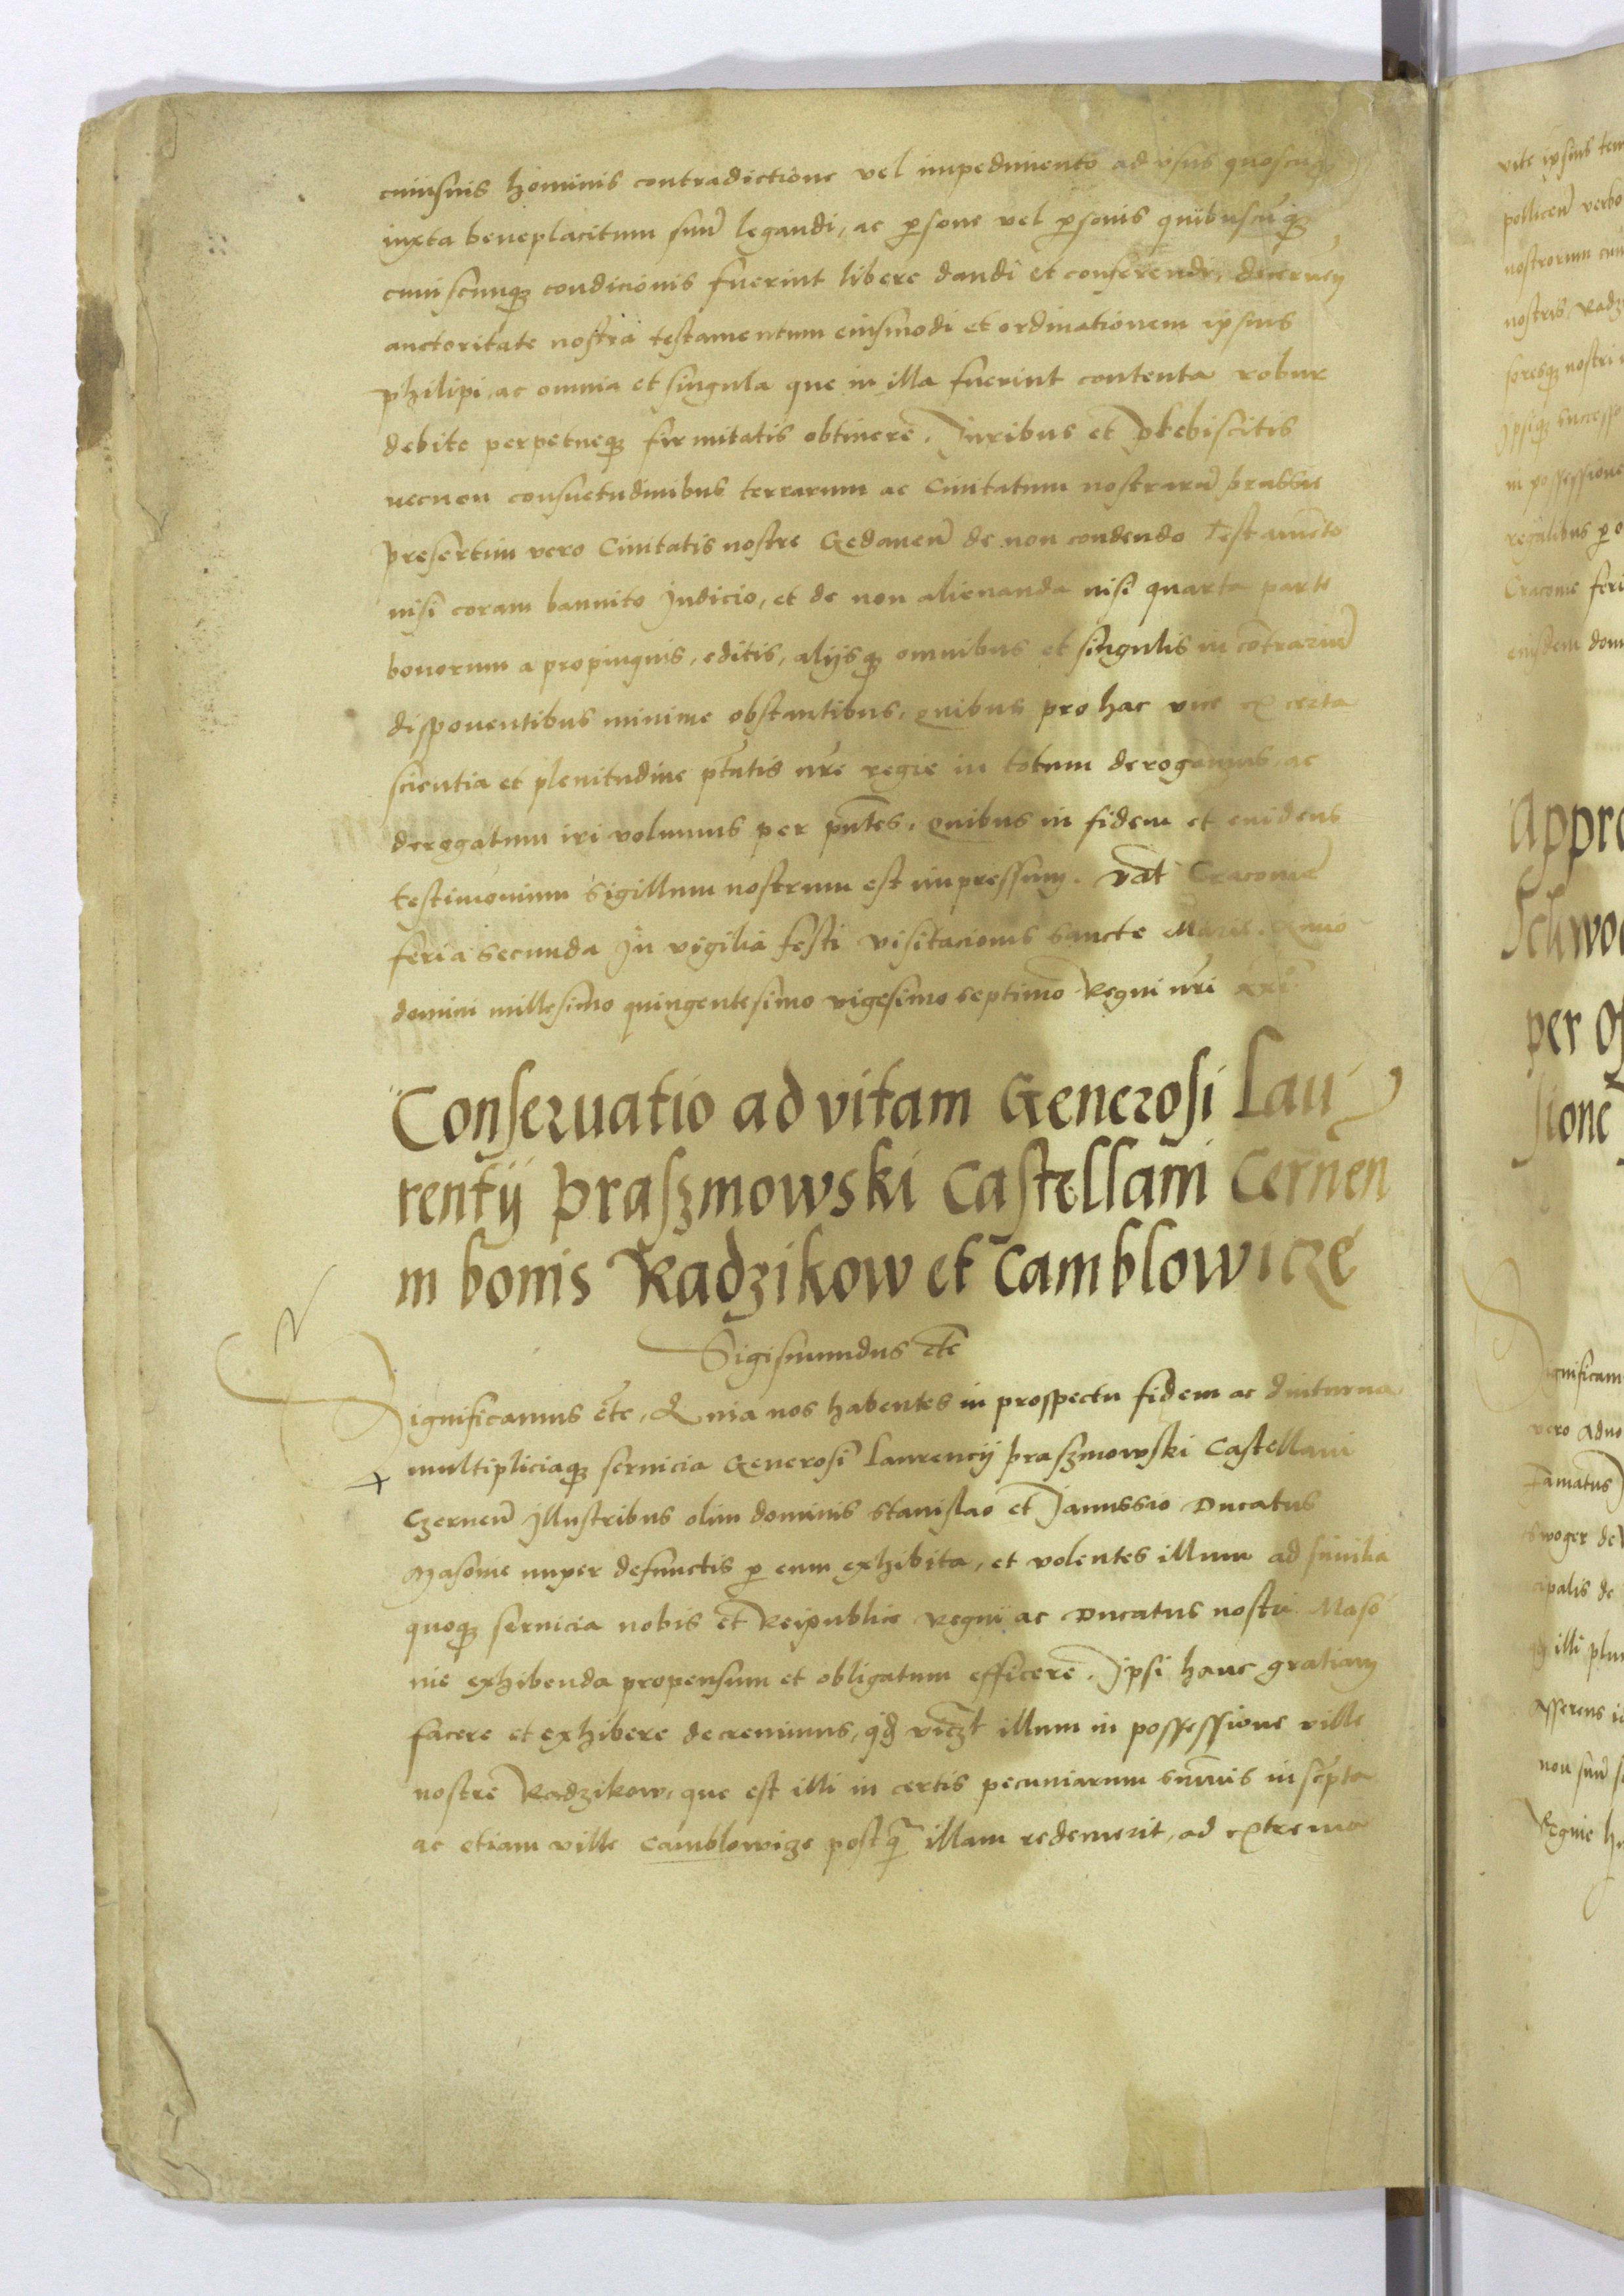 cuiusuis hominis contradictione vel impedimento ad vsus quoscunqꝫ
iuxta beneplacitum suũ legandi, ac ꝑsone vel ꝑsonis quibuscũqꝫ
cuiuscunqꝫ condicionis fuerint libere dandi et conferendi, decernen̄
auctoritate nostra testamentum eiusmodi et ordinationem ipsius
philipi, ac omnia et singula que in illa fuerint contenta robur
debite perpetueqꝫ firmitatis obtinere. Juribus et plebiscitis
necnon consuetudinibus terrarum ac Ciuitatum nostrarũ
presertim vero Ciuitatis nostre Gedaneñ de non condendo Testamẽto
nisi coram bannito Judicio, et de non alienanda nisi quarta parte
bonorum a propinquis, editis, alijsqꝫ omnibus et singulis in cõtrariũ
disponentibus minime obstantibus, quibus pro hac vice ex certa
scientia et plenitudine ptãtis nr̃e regie in totum derogamus, ac
derogatum iri volumus per pñtes. quibus in fidem et euidens
testimonium Sigillum nostrum est impressum. Dat̃ Cracouie
feria secunda In vigilia festi visitacionis Sancte Marie. Anno
domini millesimo quingentesimo vigesimo septimo Regni nr̃i xxi
Conseruatio ad vitam Generosi Lau
rentij Praszmowski Castellani Cerneñ
in bonis Radzikow et Camblowicze
Sigismundus etc̃
Significamus etc̃, Quia nos habentes in prospectu fidem ac diuturna
multipliciaqꝫ seruicia Generosi Laurencij praszmowski Castellani
Czerneñ Illustribus olim dominis Stanislao et Janussio Ducatus
Masouie nuper defunctis ꝑ eum exhibita, et volentes illum ad similia
quoqꝫ seruicia nobis et Reipublice Regni ac Ducatus nostri Maso
uie exhibenda propensum et obligatum efficere. Ipsi hanc gratiam
facere et exhibere decreuimus, qđ viczt illum in possessione ville
nostre Radzikow, que est illi in certis pecuniarum sum̃is inscr̃pta
ac etiam ville Camblowicze postq̃ illam redemerit, ad extrema